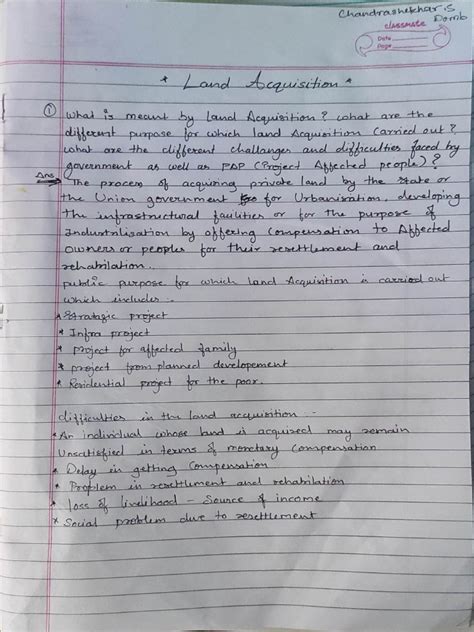 Chandrashekhar.S
Domb
classmate
Date
Page
* Land Acquisition *
① What is meant by Land Acquisition? What are the
different purpose for which land Acquisition Carried out?
What are the different challenges and difficulties faced by
government as well as PAP (Project Affected people)?
Ans The process of acquiring private land by the state or
the Union government for Urbanisation, developing
the infrastructural facilities or for the purpose of
Industrilisation by offering compensation to Affected
owners or peoples for their resettlement and
rehabilation.
public purpose for which land Acquisition is carried out
which includes :-
* Stratagic project
* Infra project
* project for affected family
* project from planned developement
* Residential project for the poor.
difficulties in the land acquisition :-
* An individual whose land is acquired may remain
Unsatisfied in terms of monetary compensation
* Delay in getting Compensation
* Problem in resettlement and rehabilation
* loss of livelihood - Source of income
* Social problem due to resettlement